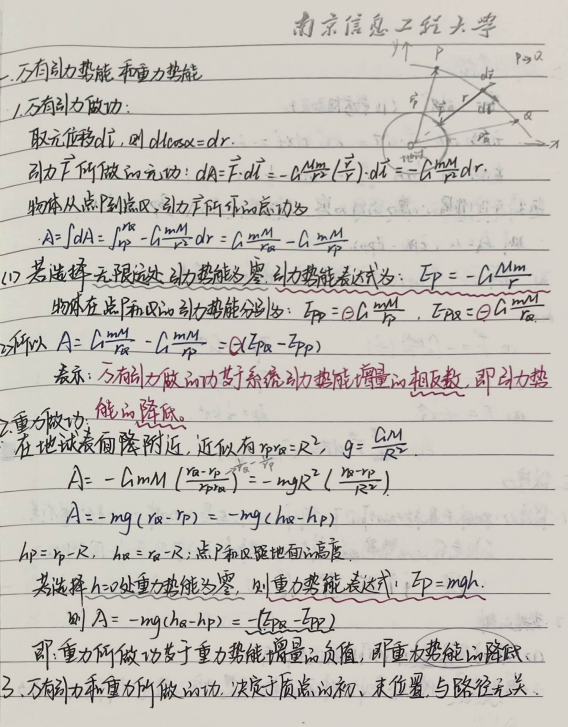 南京信息工程大学
一、万有引力势能和重力势能
1.万有引力做功:
取元位移dl⃗, 则 dlcosα=dr.
引力F⃗所做的元功: dA=F⃗·dl⃗=-G Mm/r² (r⃗/r)·dl⃗=-G mM/r² dr.
物体从点P到点Q, 引力F⃗所作的总功为
A=∫dA=∫_{rP}^{rQ} -G mM/r² dr = G mM/rQ - G mM/rP
(1) 若选择无限远处引力势能为零, 引力势能表达式为: EP=-G Mm/r
物体在点P和Q的引力势能分别为: EPP=-G mM/rP, EPQ=-G mM/rQ.
(2)所以 A=G mM/rQ - G mM/rP = -(EPQ-EPP)
表示: 万有引力做的功等于系统引力势能增量的相反数, 即引力势
能的降低。
2.重力做功:
在地球表面降附近, 近似有 rPrQ=R², g=GM/R².
A=-GmM(rQ-rP/rPrQ)=-mgR²(rQ-rP/R²)
A=-mg(rQ-rP)=-mg(hQ-hP)
hP=rP-R, hQ=rQ-R; 点P和Q距地面的高度.
若选择h=0处重力势能为零, 则重力势能表达式: EP=mgh.
则 A=-mg(hQ-hP)=-(EPQ-EPP)
即: 重力所做功等于重力势能增量的负值, 即重力势能的降低.
3.万有引力和重力所做的功, 决定于质点的初、末位置, 与路径无关.